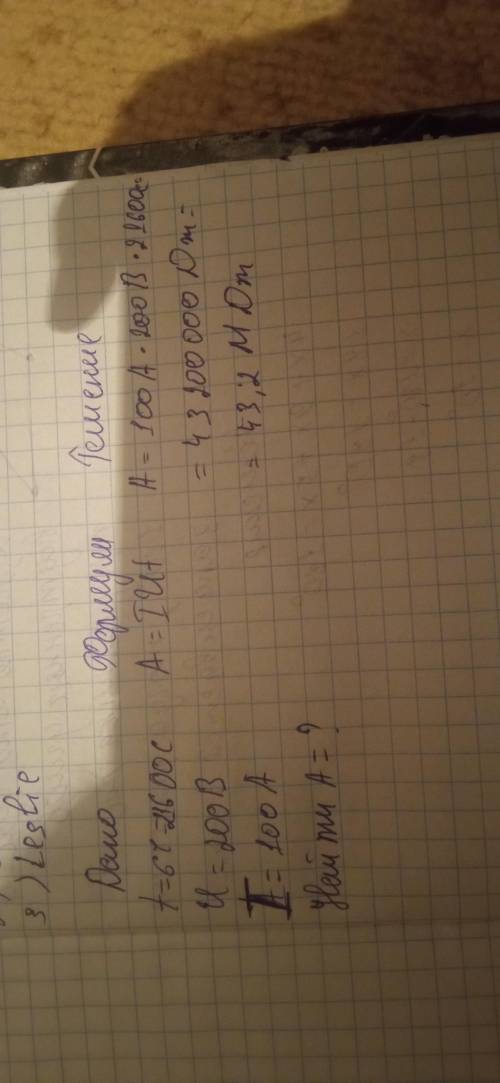 3) Leslie
Дано
t=6ч=21600с
U = 200В
I = 100 А
Найти А = ?
Формулы
A = IUt
Решение
A = 100 А · 200 В · 21600с=
= 43200000 Дж=
= 43,2 М Дж